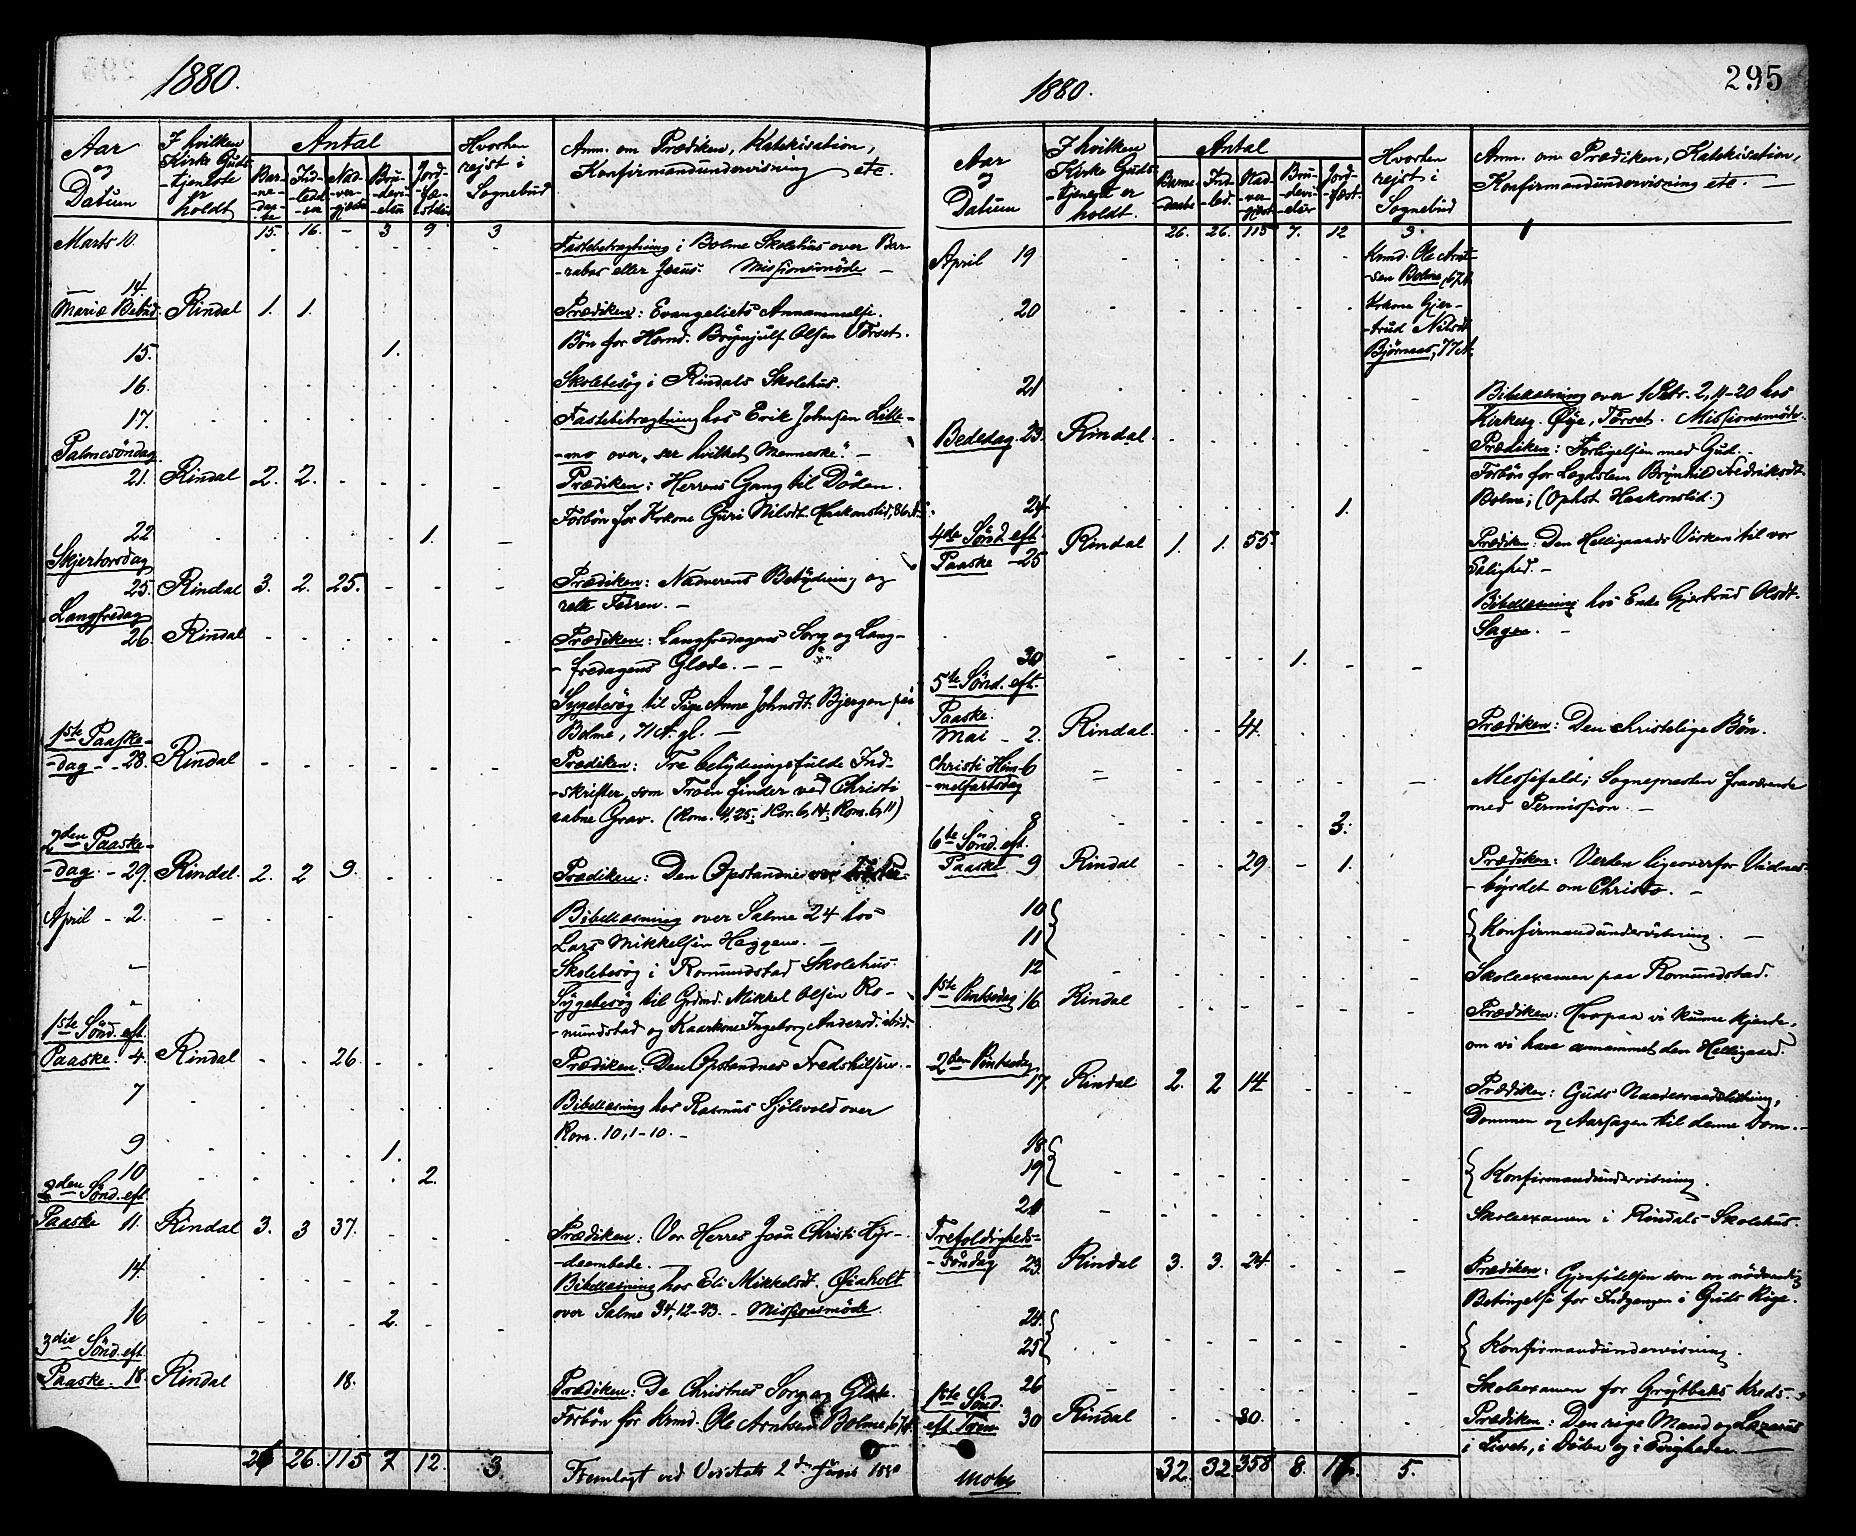 1880.
Aar og Datum
I hvilken Kirke Guds-tjeneste er holdt
Antal
Bar-ne-daa-
Ind-led-
Nad-ver-gjester
Bru-devi-elser
Jord-fæ-stelser
Hvorhen rejst i Sognebud
Anm. om Prædiken, Katekisation,
Konfirmandundervisning etc.
15. 16. - 3 9. 3
Marts 10. Fastebetragtning i Bolme Skolehus over Bar-
-rabas eller Jesus. Missionsmöde -
14.
Mariæ Bebud. Rindal 1. 1. Prædiken: Evangeliets Annammelse.
Bön for Brynjulf Olsen Törset.
15. 1.
16. Skolebesög i Rindals Skolehus.
17. Fastebetragtning hos Erik Johnsen Litle-
-mo over "se hvilket Menneske". -
Palmesöndag
21. Rindal 2. 2. Prædiken: Herrens Gang til Döden.
Forbön for Guri Nilsdt.
22 1.
Skjertorsdag
25. Rindal 3. 2. 25. Prædiken: Nadverens Betydning og
rette
Langfredag
26. Rindal Prædiken: Langfredagens Sorg og Lang-
-fredagens Glæde. -
Sygebesög til Pige Anne Johnsdt. Bjergen paa
Bolme, 71 A. gl. -
1ste Paaske-
-dag - 28. Rindal Prædiken: Tre betydningsfulde Ind-
-skrifter, som Troen finder ved Christi
aabne Grav. (Rom. 4,25; 1 Kor. 6,14; Rom. 6,11)
2den Paaske-
-dag - 29. Rindal. 2. 2 9. Prædiken: Den Opstandne
April - 2. Bibellæsning over Salme 24 hos
Lars Mikkelsen Heggem. -
Skolebesög i Romundstad Skolehus.
Sygebesög til Mikkel Olsen Ro-
-mundstad og Kaarkone Ingeborg Andersd. ibid.
1ste Sönd. eft.
Paaske. 4. Rindal 26. Prædiken: Den Opstandnes Fredshilsen.
7 Bibellæsning hos Rasmus Sjölsvold over
Rom. 10, 1-10. -
9 1.
10 2.
2den Sönd. eft.
Paaske 11. Rindal 3. 3 37. Prædiken: Vor Herres Jesu Christi Hyr-
-deembede.
14. Bibellæsning hos Eli Mikkelsdt. Öiaholt
over Salme 34, 12-23. - Missionsmöde.
16 2.
3die Sönd. eft.
Paaske. 18. Rindal 18. Prædiken: De Christnes Sorg og Glæde.
Forbön for Ole Arntsen Bolme, 67 A.
26. 26. 115 7 12. 3 Fremlagt ved Visitats 2 Juni 1880
1880.
295
Aar og Datum
I hvilken Kirke Guds-tjenest er holdt.
Antal
Barne-daabe
Ind-led.
Nad-ver-gjest
Bru-devi-elser
Jord-fæst.
Hvorhen rejst i Sognebud
Anm. om Prædiken, Katekisation,
Konfirmandundervisning etc. -
26. 26. 115 7. 12 3.
April 19 Ole Arnt-
-sen Bolme, 67 A.
20 Gjer-
-trud Nilsdt
Bjørnaas, 77 A.
21 Bibellæsning over 1 Petr. 2, 11-20 hos
Kirkesg. Øye, Törset. Missionsmöde.
Bededag. 23. Rindal. Prædiken: Forligelsen med Gud. -
Forbön for Lægdslem Brynhild Fredriksdt.
Bolme; (Ophst. Haakonslid.)
24. 1.
4de Sönd. eft.
Paaske - 25 Rindal 1. 1. 55. Prædiken: Den Helligaands Virken til vor
Salighed. -
Bibellæsning hos Enke Gjertrud Olsdt.
Sagen. -
30 1.
5te Sönd. eft.
Paaske.
Mai - 2. Rindal. 41. Prædiken: Den christelige Bön.
Christi Him-
-melfartsdag 6 Messefald; Sognepresten fraværende
med Permission. -
8 3.
6te Sönd. eft.
Paaske 9 Rindal 29. 1. Prædiken: Verden ligeoverfor Vidnes-
-byrdet om Christo. -
10
11 Konfirmandundervisning. -
12 Skoleexamen paa Romundstad.
1ste Pintsedag 16 Rindal Prædiken: Hvorpaa vi kunne kjende,
om vi have annammet den Helligaand.
2den Pintsedag
17. Rindal 2. 2 14 Prædiken: Guds
Dommen og Aarsagen til denne Dom. -
18
19 Konfirmandundervisning.
20 Skoleexamen i Rindals-Skolehus.
Trefoldigheds-
-Söndag 23. Rindal 3. 3. 24. Prædiken: Gjenfödelsen som en nödvendig
Betingelse for Indgangen i Guds Rige.
24.
25 Konfirmandundervisning.
26 Skoleexamen for Grøtbæks Kreds -
1ste Sönd.
eft. Trin. 30 Rindal 80. Prædiken: Den rige Mand og Lazarus
i Livet, i Döden og i Evigheden.
32. 32. 358 8. 17. 5.